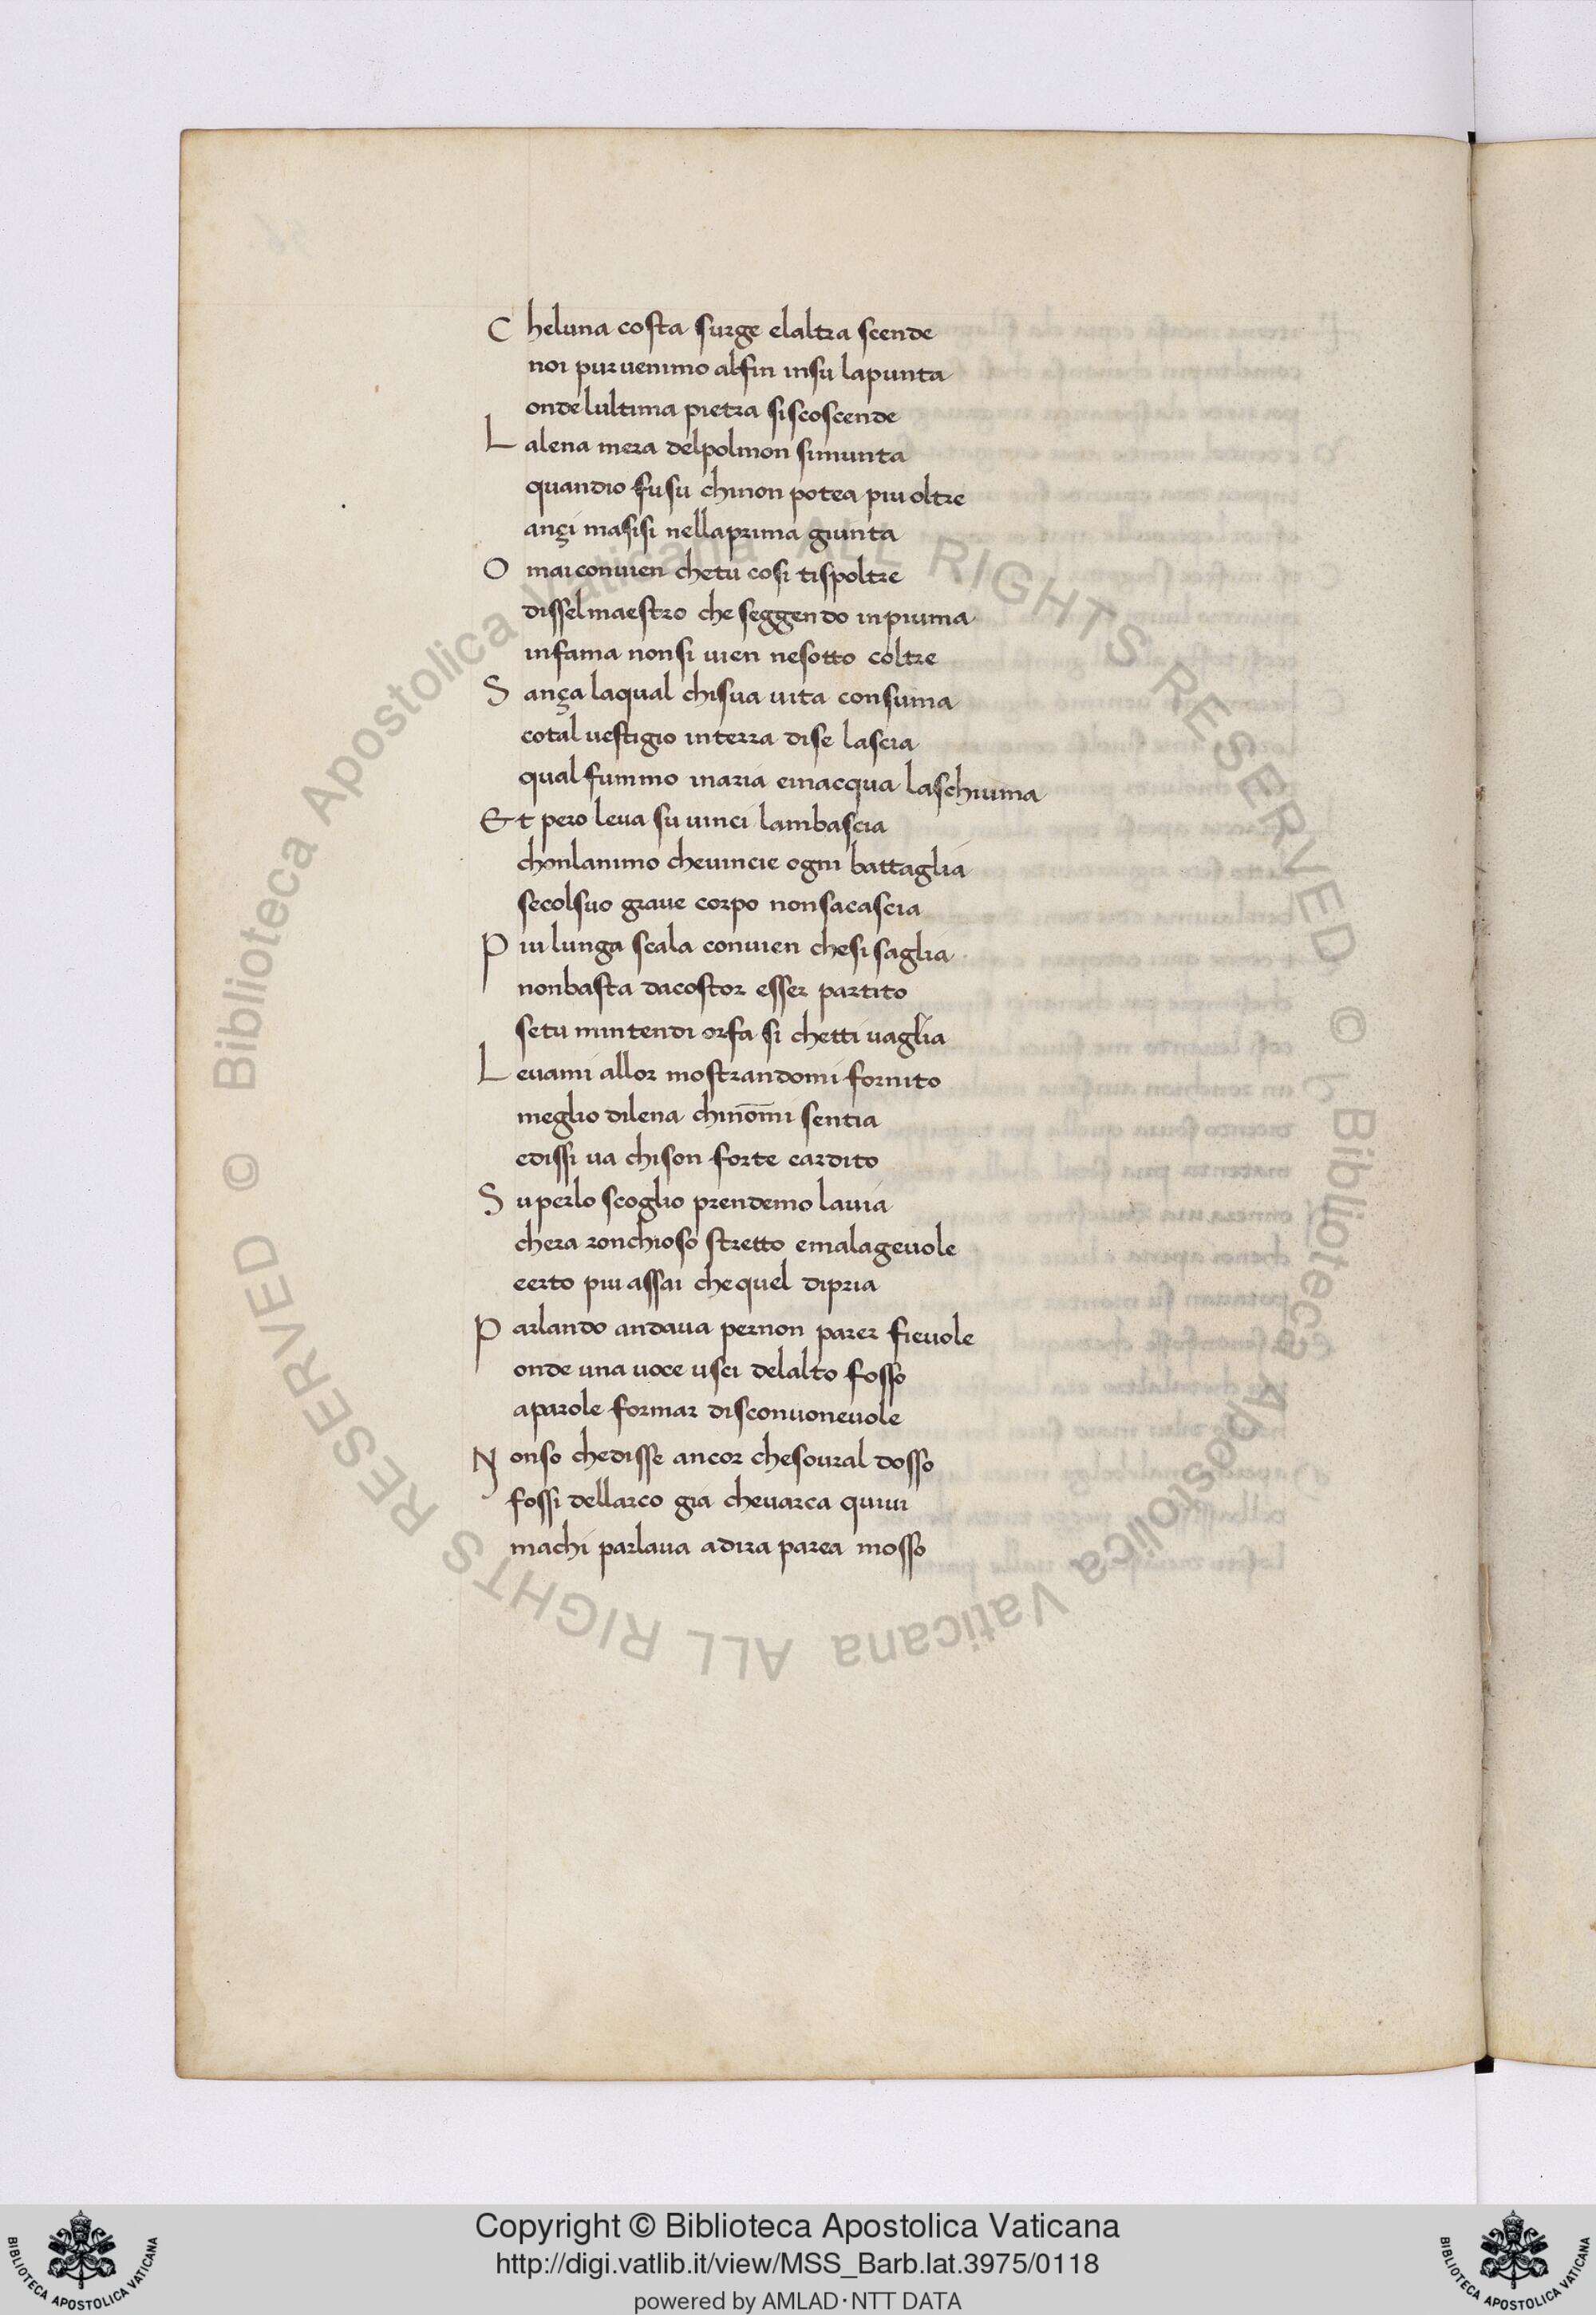 C heluna costa surge elaltra scende
noi pur venimo alfin insu lapunta
onde lultima pietra siscoscende
L alena mera delpolmon simunta
quandio fusu chinon potea piu oltre
ançi masisi nellaprima giunta
O mai convien chetu cosi tispoltre
dissel maestro che seggendo inpiuma
infama nonsi vien nesotto coltre
S ança laqual chisua vita consuma
cotal vestigio interra dise lascia
qual fummo inaria einacqua laschiuma
Et pero leva su vinci lambascia
chonlanimo chevincie ogni battaglia
secolsuo grave corpo nonsacascia
P iu lunga scala convien chesi saglia
nonbasta dacostor esser partito
setu mintendi orfa si chetti vaglia
L evami allor mostrandomi fornito
meglio dilena chinōmi sentia
edissi va chison forte eardito
S uperlo scoglio prendemo lavia
chera ronchioso stretto emalagevole
eerto piu assai chequel dipria
P arlando andava pernon parer fievole
onde una voce usci delalto fosso
aparole formar disconvonevole
N onso chedisse ancor chesoural dosso
fossi dellarco gia chevarca quivi
machi parlava adira parea mosso
© Biblioteca Apostolica Vaticana ALL RIGHTS RESERVED
© Biblioteca Apostolica Vaticana ALL RIGHTS RESERVED
BIBLIOTECA APOSTOLICA VATICANA
Copyright © Biblioteca Apostolica Vaticana
http://digi.vatlib.it/view/MSS_Barb.lat.3975/0118
powered by AMLAD・NTT DATA
BIBLIOTECA APOSTOLICA VATICANA